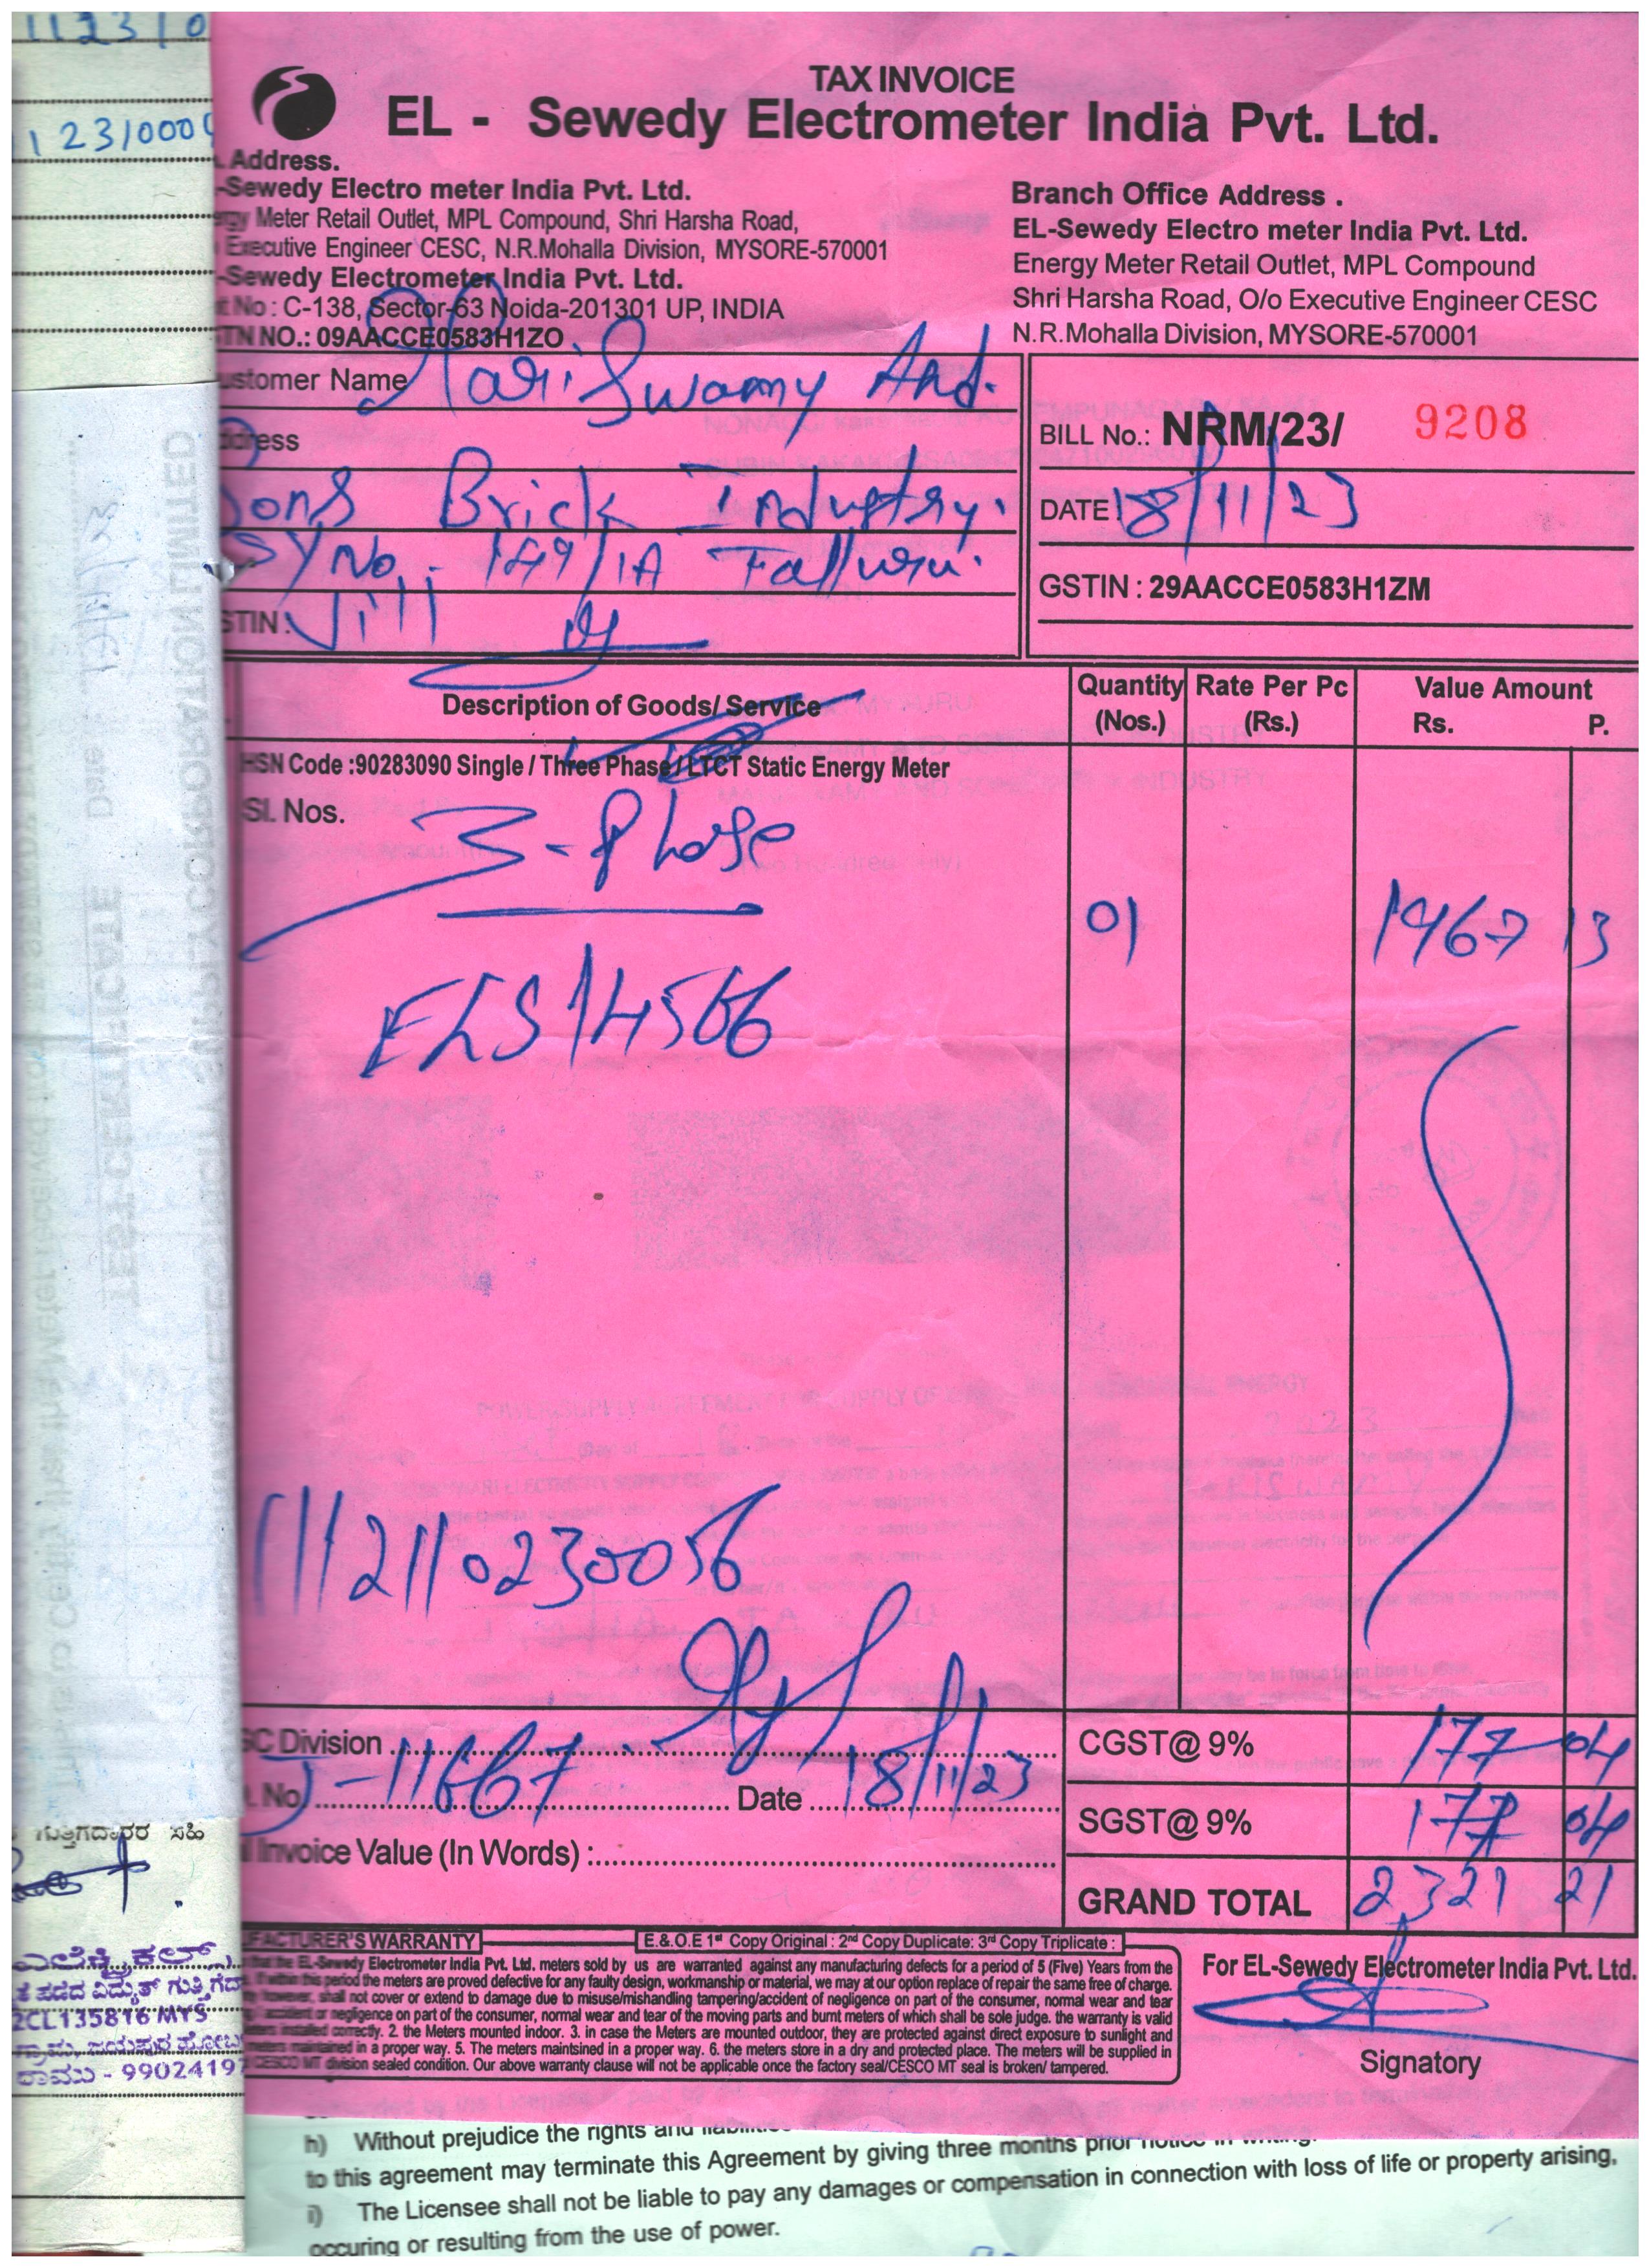 TAX INVOICE
EL - Sewedy Electrometer India Pvt. Ltd.
Address.
-Sewedy Electro meter India Pvt. Ltd.
Meter Retail Outlet, MPL Compound, Shri Harsha Road,
Executive Engineer CESC, N.R.Mohalla Division, MYSORE-570001
-Sewedy Electrometer India Pvt. Ltd.
No : C-138, Sector-63 Noida-201301 UP, INDIA
TN NO.: 09AACCE0583H1ZO
Branch Office Address .
EL-Sewedy Electro meter India Pvt. Ltd.
Energy Meter Retail Outlet, MPL Compound
Shri Harsha Road, O/o Executive Engineer CESC
N.R.Mohalla Division, MYSORE-570001
ustomer Name Mari Swamy And.
dress
Sons Brick Industry.
SY No. 149/1A
STIN : Vill
BILL No.: NRM/23/ 9208
DATE 18/11/23
GSTIN : 29AACCE0583H1ZM
Description of Goods/ Service
Quantity (Nos.)
Rate Per Pc (Rs.)
Value Amount Rs. P.
HSN Code :90283090 Single / Three Phase / LTCT Static Energy Meter
Sl. Nos.
3-Phase
01 1967 13
ELS14566
1112110230056
SC Division
. No J-11667 Date 18/11/23
Invoice Value (In Words) :
CGST@ 9% 177 04
SGST@ 9% 177 04
GRAND TOTAL 2,321 21
FACTURER'S WARRANTY
E.& .O.E 1st Copy Original : 2nd Copy Duplicate: 3rd Copy Triplicate :
that the EL-Sewedy Electrometer India Pvt. Ltd. meters sold by us are warranted against any manufacturing defects for a period of 5 (Five) Years from the
If within this period the meters are proved defective for any faulty design, workmanship or material, we may at our option replace of repair the same free of charge.
however, shall not cover or extend to damage due to misuse/mishandling tampering/accident of negligence on part of the consumer, normal wear and tear
accident or negligence on part of the consumer, normal wear and tear of the moving parts and burnt meters of which shall be sole judge. the warranty is valid
installed correctly. 2. the Meters mounted indoor. 3. in case the Meters are mounted outdoor, they are protected against direct exposure to sunlight and
meters maintained in a proper way. 5. The meters maintsined in a proper way. 6. the meters store in a dry and protected place. The meters will be supplied in
CESCO MT division sealed condition. Our above warranty clause will not be applicable once the factory seal/CESCO MT seal is broken/ tampered.
For EL-Sewedy Electrometer India Pvt. Ltd.
Signatory
ಗುತ್ತಿಗದಾರರ ಸಹಿ
2CL135816 MYS
- 9902419
h) Without prejudice the rights and
to this agreement may terminate this Agreement by giving three months prior notice in writing.
i) The Licensee shall not be liable to pay any damages or compensation in connection with loss of life or property arising,
occuring or resulting from the use of power.